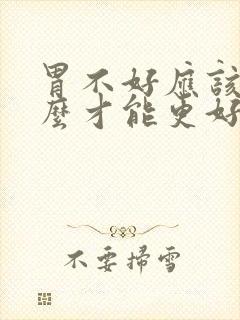 胃不好應該
麼才能更好
不要掃雪